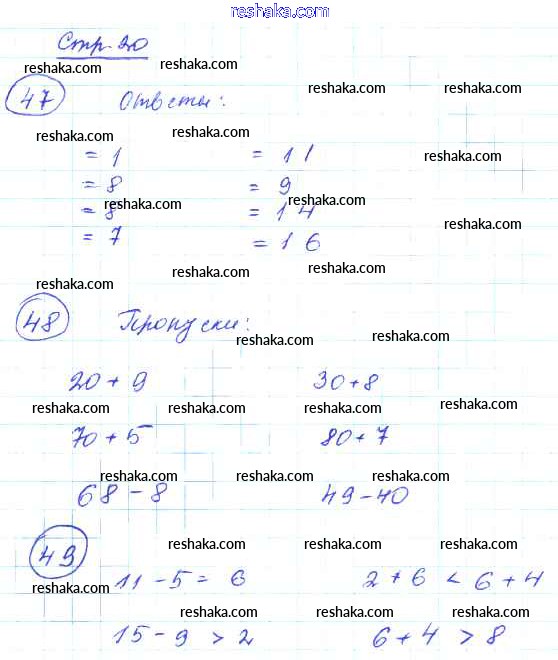 reshaka.com
Стр. 20
reshaka.com reshaka.com
47 Ответы: reshaka.com reshaka.com
reshaka.com reshaka.com
= 1 = 11 reshaka.com
= 8 = 9
reshaka.com reshaka.com
= 8 = 14
reshaka.com
= 7 = 16
reshaka.com reshaka.com reshaka.com
48 Пропуски:
reshaka.com reshaka.com
20 + 9 30 + 8
reshaka.com reshaka.com reshaka.com reshaka.com
70 + 5 80 + 7
reshaka.com reshaka.com
68 - 8 49 - 40
49 reshaka.com reshaka.com reshaka.com
11 - 5 = 6 2 + 6 < 6 + 4
reshaka.com
reshaka.com reshaka.com reshaka.com
15 - 9 > 2 6 + 4 > 8